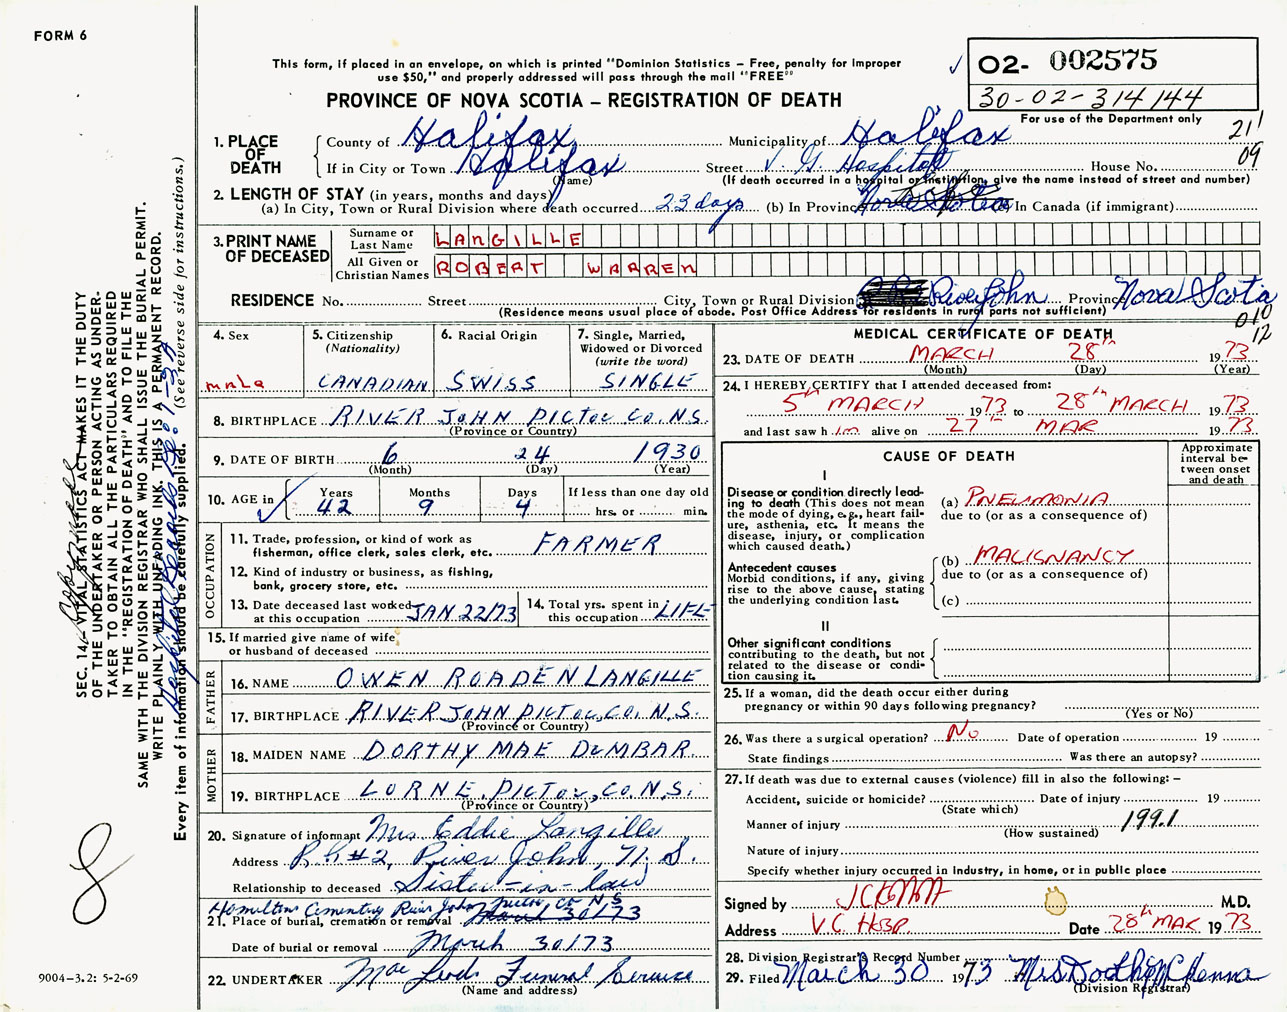 FORM 6
This form, if placed in an envelope, on which is printed "Dominion Statistics – Free, penalty for improper
use $50," and properly addressed will pass through the mail "FREE"
✓ O2- 002575
30-02-314144
For use of the Department only
PROVINCE OF NOVA SCOTIA – REGISTRATION OF DEATH
211
09
1. PLACE OF DEATH
County of Halifax Municipality of Halifax
If in City or Town Halifax Street V. G. Hospital House No.
(Name) (If death occurred in a hospital or institution, give the name instead of street and number)
2. LENGTH OF STAY (in years, months and days)
(a) In City, Town or Rural Division where death occurred 23 days (b) In Province Nova Scotia In Canada (if immigrant)
3. PRINT NAME OF DECEASED
Surname or Last Name LANGILLE
All Given or Christian Names ROBERT WARREN
RESIDENCE No. Street City, Town or Rural Division River John Province Nova Scota
(Residence means usual place of abode. Post Office Address for residents in rural parts not sufficient)
010
12
4. Sex male
5. Citizenship (Nationality) CANADIAN
6. Racial Origin SWISS
7. Single, Married, Widowed or Divorced (write the word) SINGLE
8. BIRTHPLACE RIVER JOHN PICTOU CO. N.S.
(Province or Country)
9. DATE OF BIRTH 6 24 1930
(Month) (Day) (Year)
10. AGE in ✓ Years 42 Months 9 Days 4 If less than one day old hrs. or min.
OCCUPATION
11. Trade, profession, or kind of work as fisherman, office clerk, sales clerk, etc. FARMER
12. Kind of industry or business, as fishing, bank, grocery store, etc.
13. Date deceased last worked at this occupation JAN 22/73
14. Total yrs. spent in this occupation LIFE
15. If married give name of wife or husband of deceased
FATHER
16. NAME OWEN ROADEN LANGILLE
17. BIRTHPLACE RIVER JOHN PICTOU, CO. N.S.
(Province or Country)
MOTHER
18. MAIDEN NAME DORTHY MAE DUMBAR
19. BIRTHPLACE LORNE, PICTOU, CO. N.S.
(Province or Country)
20. Signature of informant Mrs Eddie Langille
Address R.R #2, River John, N. S.
Relationship to deceased Sister-in-law
Hamilton Cementry River John Pictou Co N.S
21. Place of burial, cremation or removal March 30/73
Date of burial or removal March 30/73
22. UNDERTAKER Mac Leods Funeral Service
(Name and address)
MEDICAL CERTIFICATE OF DEATH
23. DATE OF DEATH MARCH 28th 1973
(Month) (Day) (Year)
24. I HEREBY CERTIFY that I attended deceased from:
5th MARCH 1973 to 28th MARCH 1973
and last saw him alive on 27th MAR 1973
CAUSE OF DEATH
Approximate interval between onset and death
I
Disease or condition directly leading to death (This does not mean the mode of dying, e.g., heart failure, asthenia, etc. It means the disease, injury, or complication which caused death.)
(a) PNEUMONIA
due to (or as a consequence of)
Antecedent causes
Morbid conditions, if any, giving rise to the above cause, stating the underlying condition last.
(b) MALIGNANCY
due to (or as a consequence of)
(c)
II
Other significant conditions
contributing to the death, but not related to the disease or condition causing it.
25. If a woman, did the death occur either during
pregnancy or within 90 days following pregnancy?
(Yes or No)
26. Was there a surgical operation? No Date of operation 19
State findings Was there an autopsy?
27. If death was due to external causes (violence) fill in also the following: –
Accident, suicide or homicide? Date of injury 19
(State which)
Manner of injury 1991
(How sustained)
Nature of injury
Specify whether injury occurred in industry, in home, or in public place
Signed by M.D.
Address V.G. HOSP. Date 28th MAR 1973
28. Division Registrar's Record Number
29. Filed March 30 1973 Mrs Dorothy McKenna
(Division Registrar)
SEC. 14.— VITAL STATISTICS ACT MAKES IT THE DUTY
OF THE UNDERTAKER OR PERSON ACTING AS UNDER-
TAKER TO OBTAIN ALL THE PARTICULARS REQUIRED
IN THE "REGISTRATION OF DEATH" AND TO FILE THE
SAME WITH THE DIVISION REGISTRAR WHO SHALL ISSUE THE BURIAL PERMIT.
WRITE PLAINLY WITH UNFADING INK. THIS IS A PERMANENT RECORD.
Every item of information should be carefully supplied. (See reverse side for instructions.)
8
9004–3.2: 5-2-69